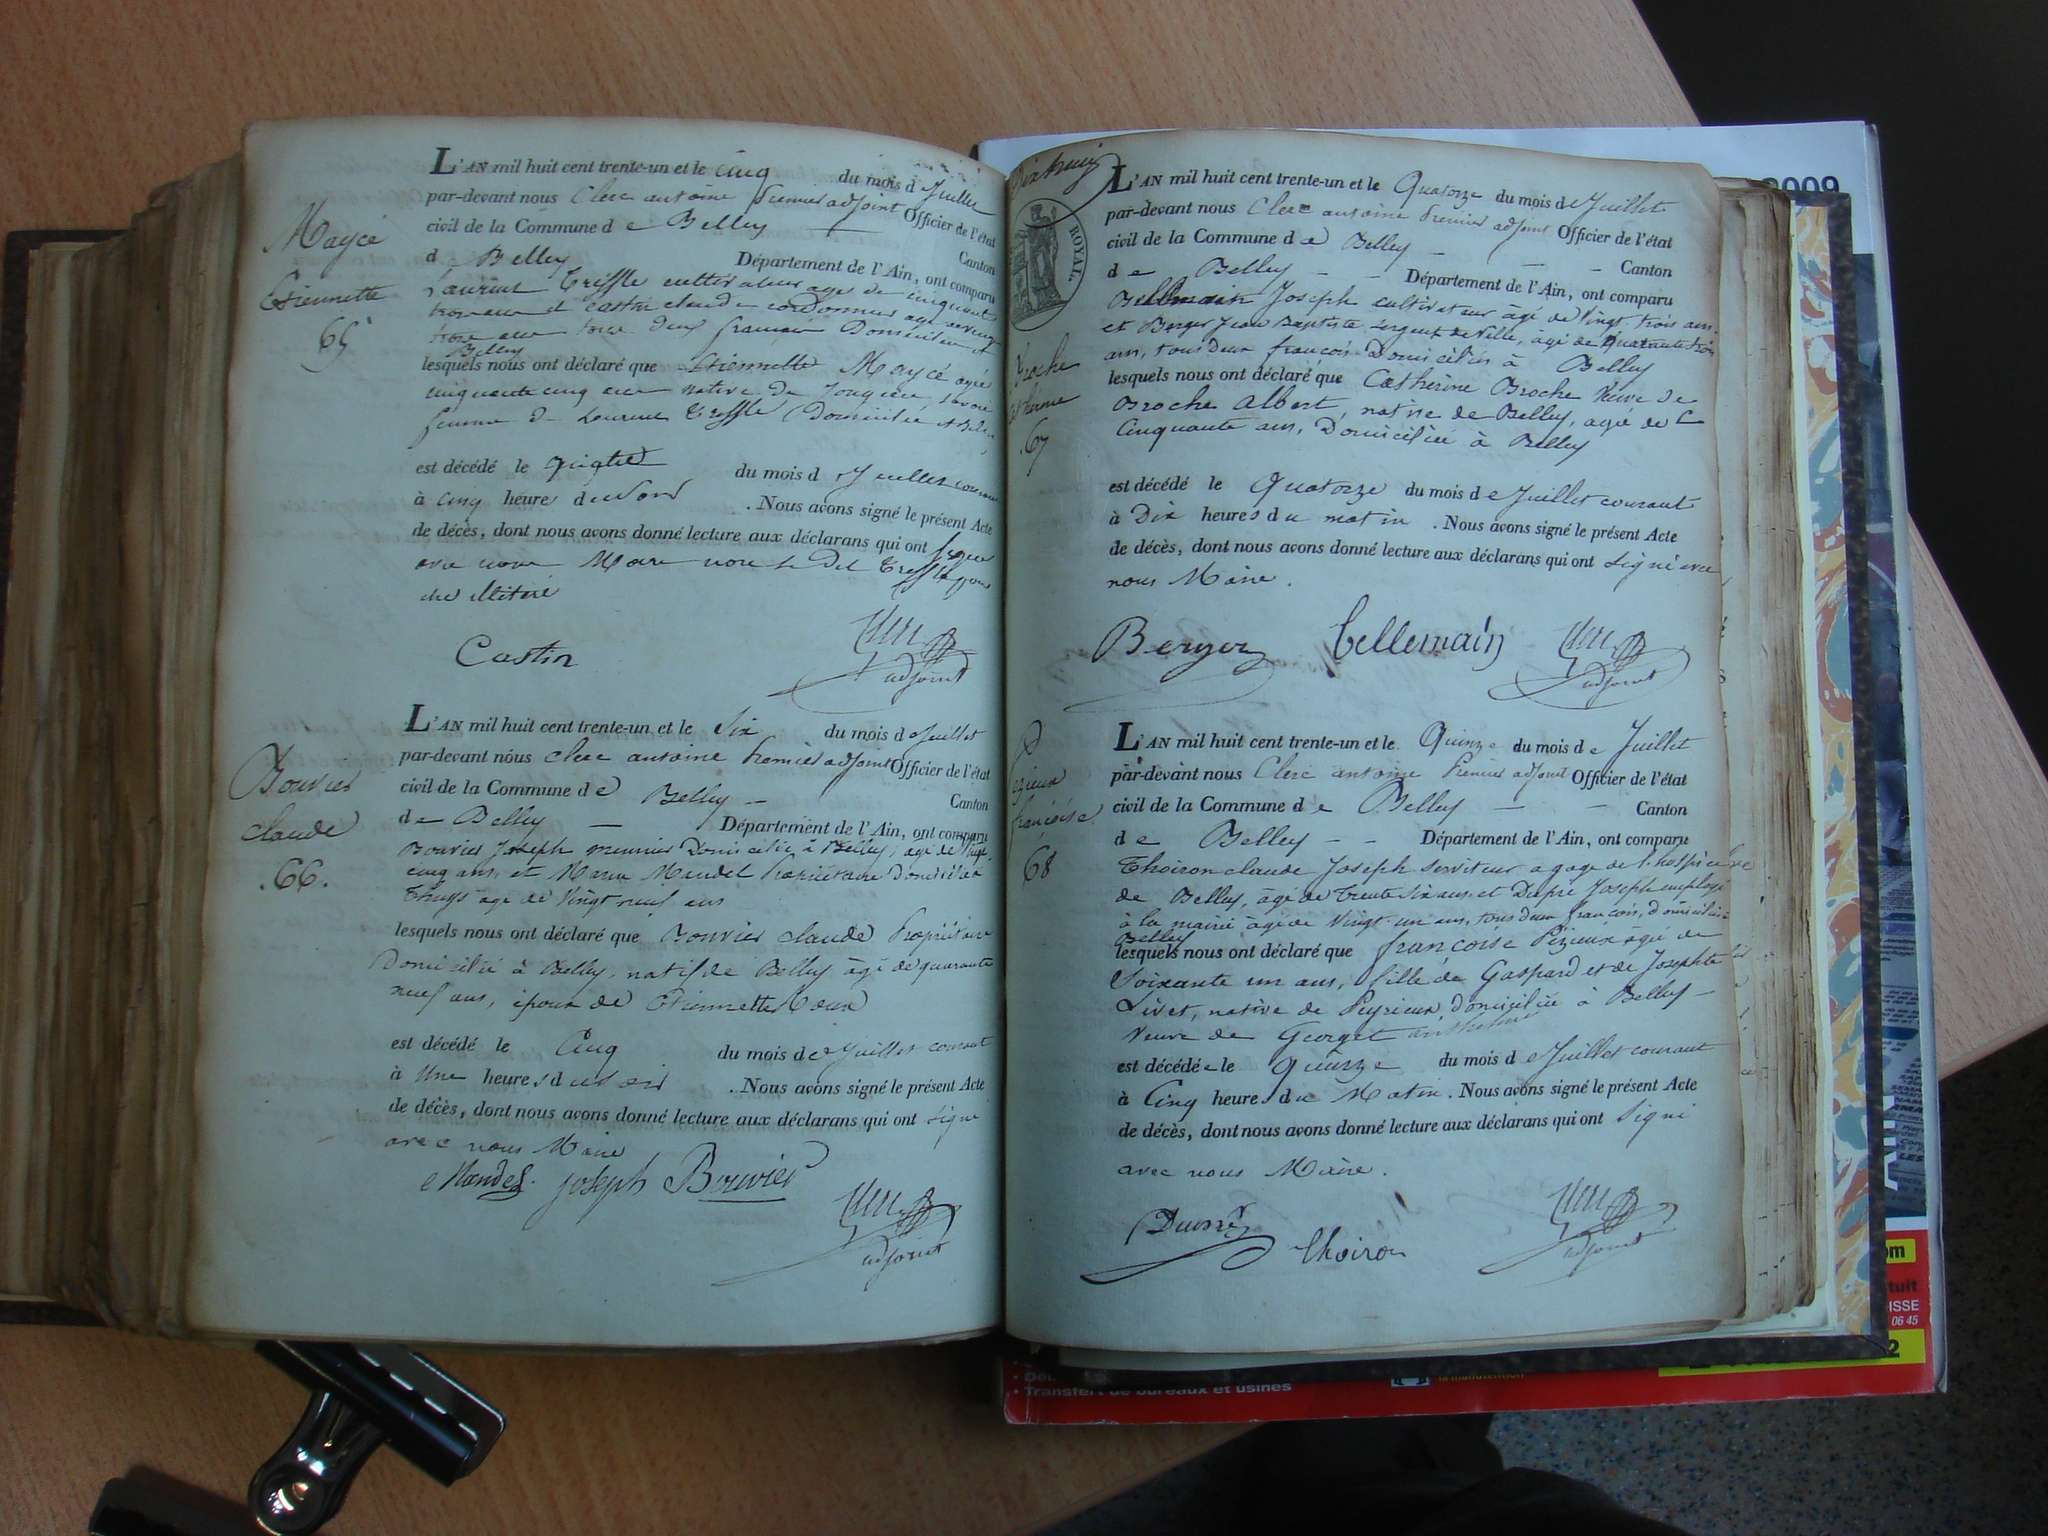 L'AN mil huit cent trente-un et le cinq du mois de Juillet
par-devant nous Clerc antoine Premier adjoint Officier de l'état
civil de la Commune de Belley Canton
de Belley Département de l'Ain, ont comparu
Laurent Treffle cultivateur agé de cinquante
trois ans et Castin claude cordonnier
Domiciliés à
Belley
lesquels nous ont déclaré que Etiennette Maycé agée
cinquante cinq ans native de Jongieu Savoie
femme de Laurent Treffle Domiciliée à Belley
est décédé le quatre du mois de Juillet courant
à cinq heures du soir . Nous avons signé le présent Acte
de décès, dont nous avons donné lecture aux déclarans qui ont signé
avec nous Maire non le dit Treffle pour
Mayce
Etiennette
65
Castin
adjoint
L'AN mil huit cent trente-un et le Six du mois de Juillet
par-devant nous clerc antoine Premier adjoint Officier de l'état
civil de la Commune de Belley - Canton
de Belley — Département de l'Ain, ont comparu
Bouvier Joseph meunier Domicilié à Belley, agé de Vingt
cinq ans, et Mandel Propriétaire Domicilié à
Thuys agé de Vingt neuf ans
lesquels nous ont déclaré que Bouvier claude Propriétaire
Domicilié à Belley, natif de Belley âgé de quarante
neuf ans, époux de Etiennette
est décédé le Cinq du mois de Juillet courant
à Une heures du soir . Nous avons signé le présent Acte
de décès, dont nous avons donné lecture aux déclarans qui ont signé
avec nous Maire
Bouvier
claude
.66.
Mandel. joseph Bouvier
adjoint
Dixhuit
ROYAL.
L'AN mil huit cent trente-un et le Quatorze du mois de Juillet
par-devant nous Clerc antoine Premier adjoint Officier de l'état
civil de la Commune de Belley - - - Canton
de Belley - - Département de l'Ain, ont comparu
Bellemain Joseph cultivateur âgé de Vingt trois ans
et Berger Jean Baptiste sergent de Ville, âgé de quarante trois
ans, tous deux françois Domiciliés à Belley
lesquels nous ont déclaré que Catherine Broche Veuve de
Broche Albert, native de Belley, agée de
Cinquante ans, Domiciliée à Belley
est décédé le Quatorze du mois de Juillet courant
à Dix heures du matin . Nous avons signé le présent Acte
de décès, dont nous avons donné lecture aux déclarans qui ont signé avec
nous Maire.
Broche
Catherine
.67
Berger Bellemain
adjoint
L'AN mil huit cent trente-un et le Quinze du mois de Juillet
par-devant nous Clerc antoine Premier adjoint Officier de l'état
civil de la Commune de Belley — - Canton
de Belley - - Département de l'Ain, ont comparu
Thoiron claude Joseph serviteur a gage de l'hospice
de Belley, âgé de Trente Six ans et Dupré Joseph employé
à la mairie âgé de Vingt-un ans, tous deux françois, domiciliés
Belley
lesquels nous ont déclaré que françoise Pezieux âgée de
Soixante un ans, fille de Gaspard et de Josephte
Livet, native de Peyrieux, domiciliée à Belley -
Veuve de Georget anthelme
est décédée le quinze du mois de Juillet courant
à Cinq heures du Matin. Nous avons signé le présent Acte
de décès, dont nous avons donné lecture aux déclarans qui ont signé
avec nous Maire.
françoise
68
Dupré Thoiron
adjoint
2009
• Transfert de bureaux et usines
ISSE
06 45
2